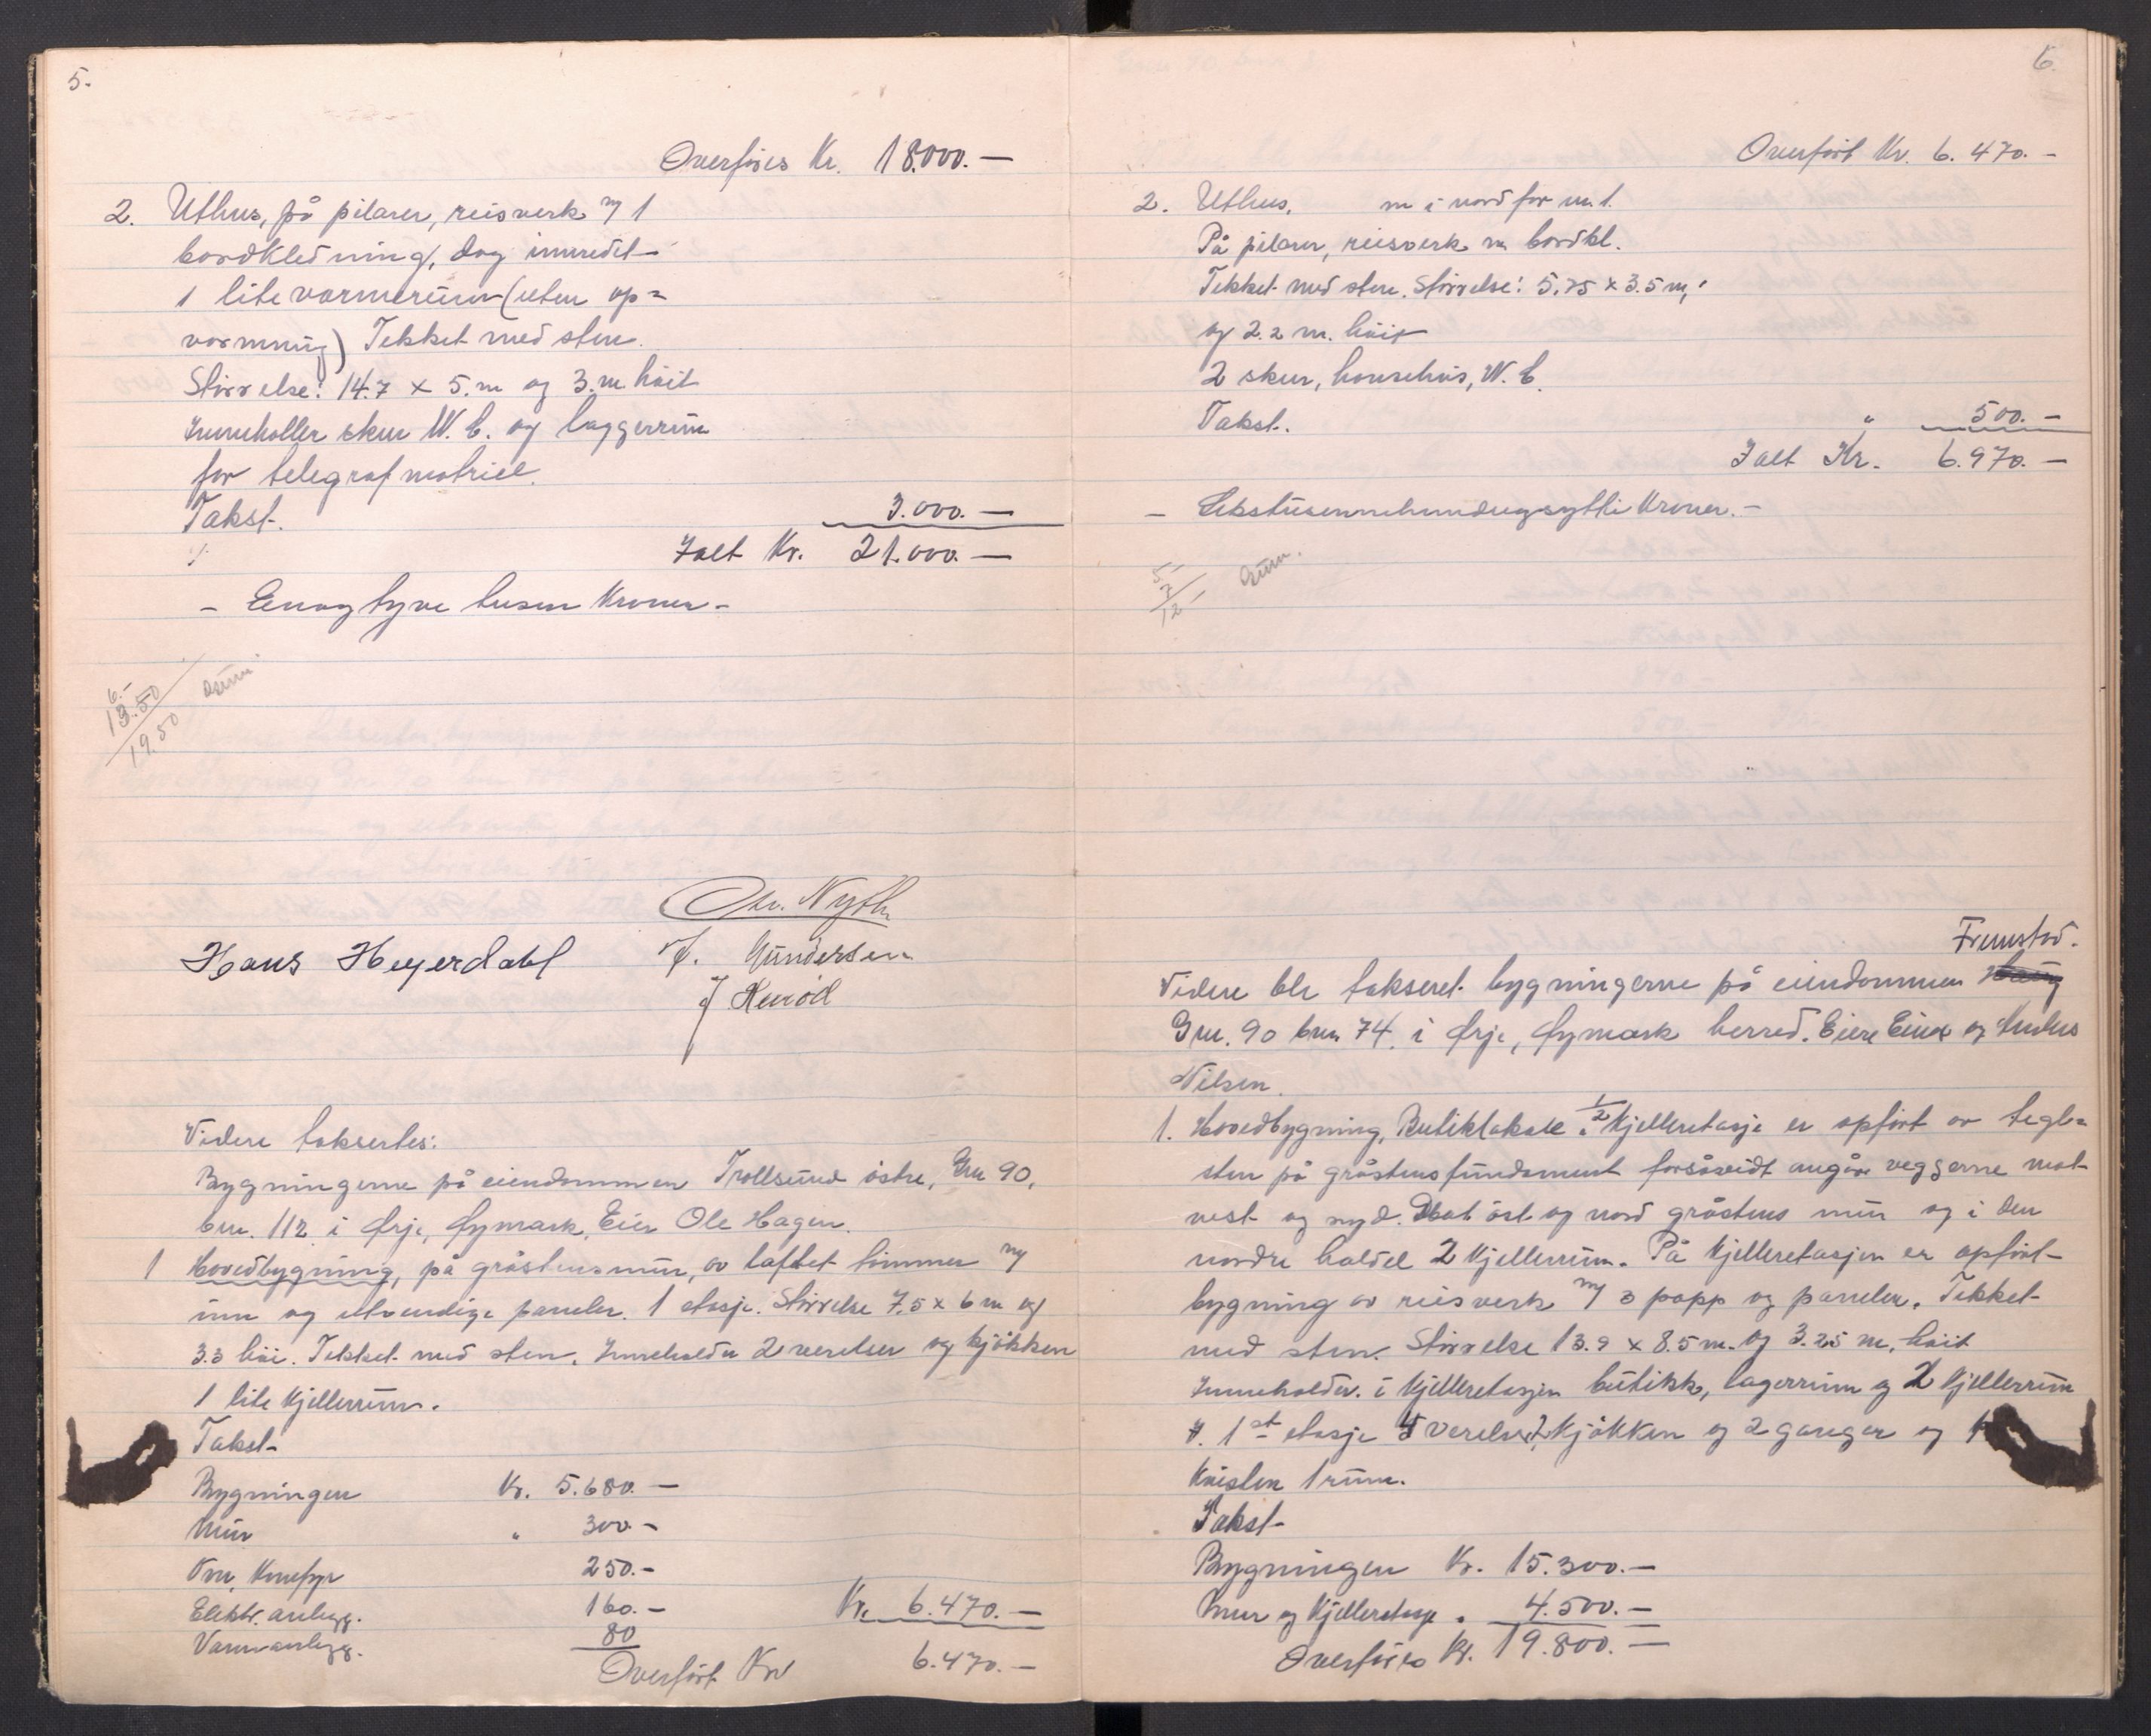 5.
Overføres Kr. 18.000.—
2. Uthus, på pilarer, reisverk m/ 1
bordkledning, dog innredet
1 lite varmerum (uten op=
varmning) Tekket med sten.
Størrelse: 14.7 x 5.m og 3.m høit
Inneholler skur W.C. og laggerrum
for telegraf matriell.
Takst. 3.000.—
Ialt Kr. 21.000.—
- Enogtyve tusen Kroner -
6.-
13.50
19.50
Hans Heyerdahl
Gundersen
Videre taksertes:
Bygningerne på eiendommen Trollsund østre, Gnr 90,
bnr. 112 i Ørje, Øymark, Eier Ole Hagen.
1 Hovedbygning, på gråstensmur, av laftet tømmer m/
inn og utvendige paneler. 1 etasje. Størrelse 7,5 x 6 m og
3.3 høi. Tekket med sten. Inneholder 2 værelser og kjøkken
1 lite kjellerrum.
Takst
Bygningen Kr. 5.680.—
Mur " 300.-
250.-
Elektr. anlegg. 160.- Kr. 6.470.—
Vannanlegg. 80
Overført Kr 6.470.—
6.
Overført Kr. 6.470.-
2. Uthus, m i nord for nr. 1.
På pilarer, reisverk m bordkl.
Tekket med sten. Størrelse: 5,75 x 3.5 m,
og 2.2 m. høit
2 skur, hønsehus, W.C.
Takst. " 500.—
Ialt Kr. 6.970.—
- Sekstusennihundreogsytti Kroner.-
5-
7
12-
Fremstad.
Videre ble taksert bygningerne på eiendommen
Gnr. 90 bnr 74. i Ørje, Øymark herred. Eiere Einar og
Nilsen.
1. Hovedbygning, Butiklokale i 1/2 Kjelleretasje er opført av tegl=
sten på gråstensfundament forsåvidt angår veggerne mot
vest og syd. Mot øst og nord gråstens mur og i den
nordre haldel 2 Kjellerrum. På kjelleretasjen er opført
bygning av reisverk m/ 3 papp og paneler. Tekket
med sten. Størrelse 13.9 x 8.5 m. og 3.25 m. høit
Inneholder. i Kjelleretasjen butikk, lagerrum og 2 kjellerrum
1st etasje 5 værelser, 2 kjøkken og 2 ganger og
Kvisten 1 rum.
Takst
Bygningen Kr. 15.300.—
Mur og Kjelleretasje " 4.500.—
Overføres Kr. 19.800.—